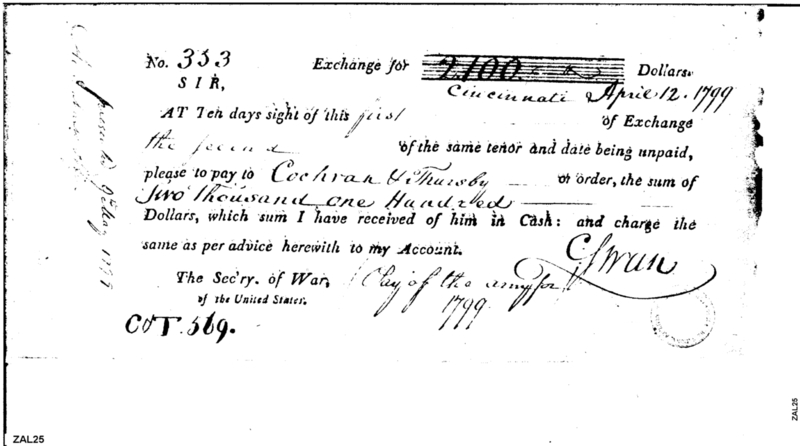 No. 353 Exchange for 2,100. Dollars.
SIR, Cincinnati April 12. 1799
AT Ten days sight of this first of Exchange
the second of the same tenor and date being unpaid,
please to pay to Cochran & Thursby or order, the sum of
Two thousand one Hundred
Dollars, which sum I have received of him in Cash: and charge the
same as per advice herewith to my Account.
CSwan
The Sec'ry. of War, Pay of the army for
of the United States. 1799
COT. 569.
presented 9 May 1799
ZAL25
ZAL25